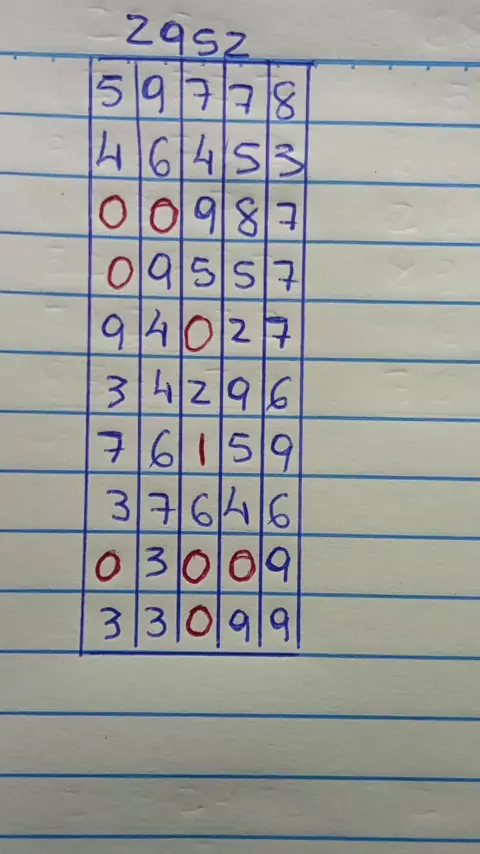 2952
5 9 7 7 8
4 6 4 5 3
0 0 9 8 7
0 9 5 5 7
9 4 0 2 7
3 4 2 9 6
7 6 1 5 9
3 7 6 4 6
0 3 0 0 9
3 3 0 9 9